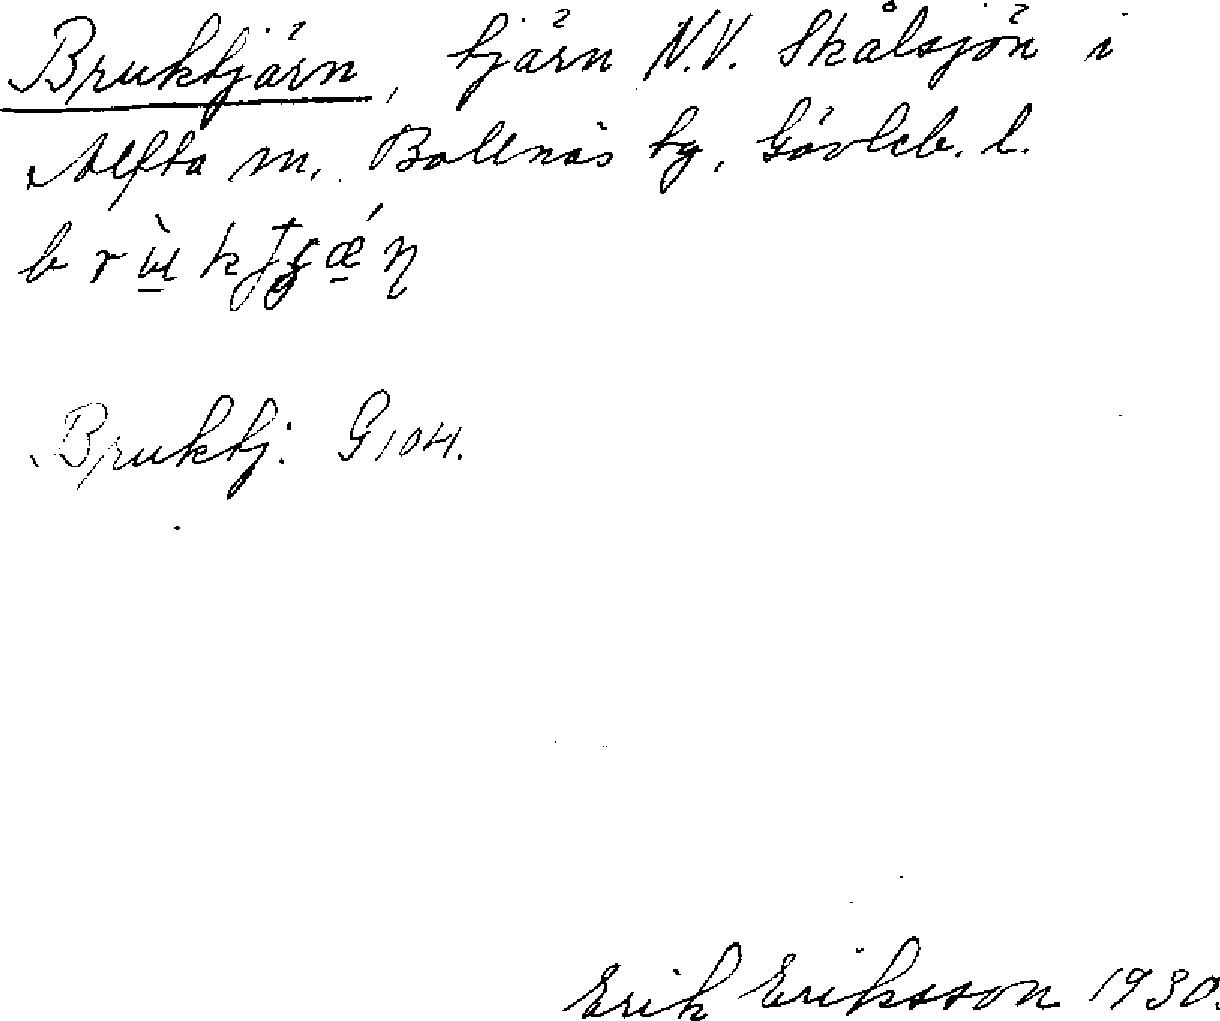 Bruktjärn, tjärn N.V. Skålsjön i
Alfta m. Bollnäs tg, Gävleb. l.
Bruktj. G 104.
Erik Eriksson 1930.